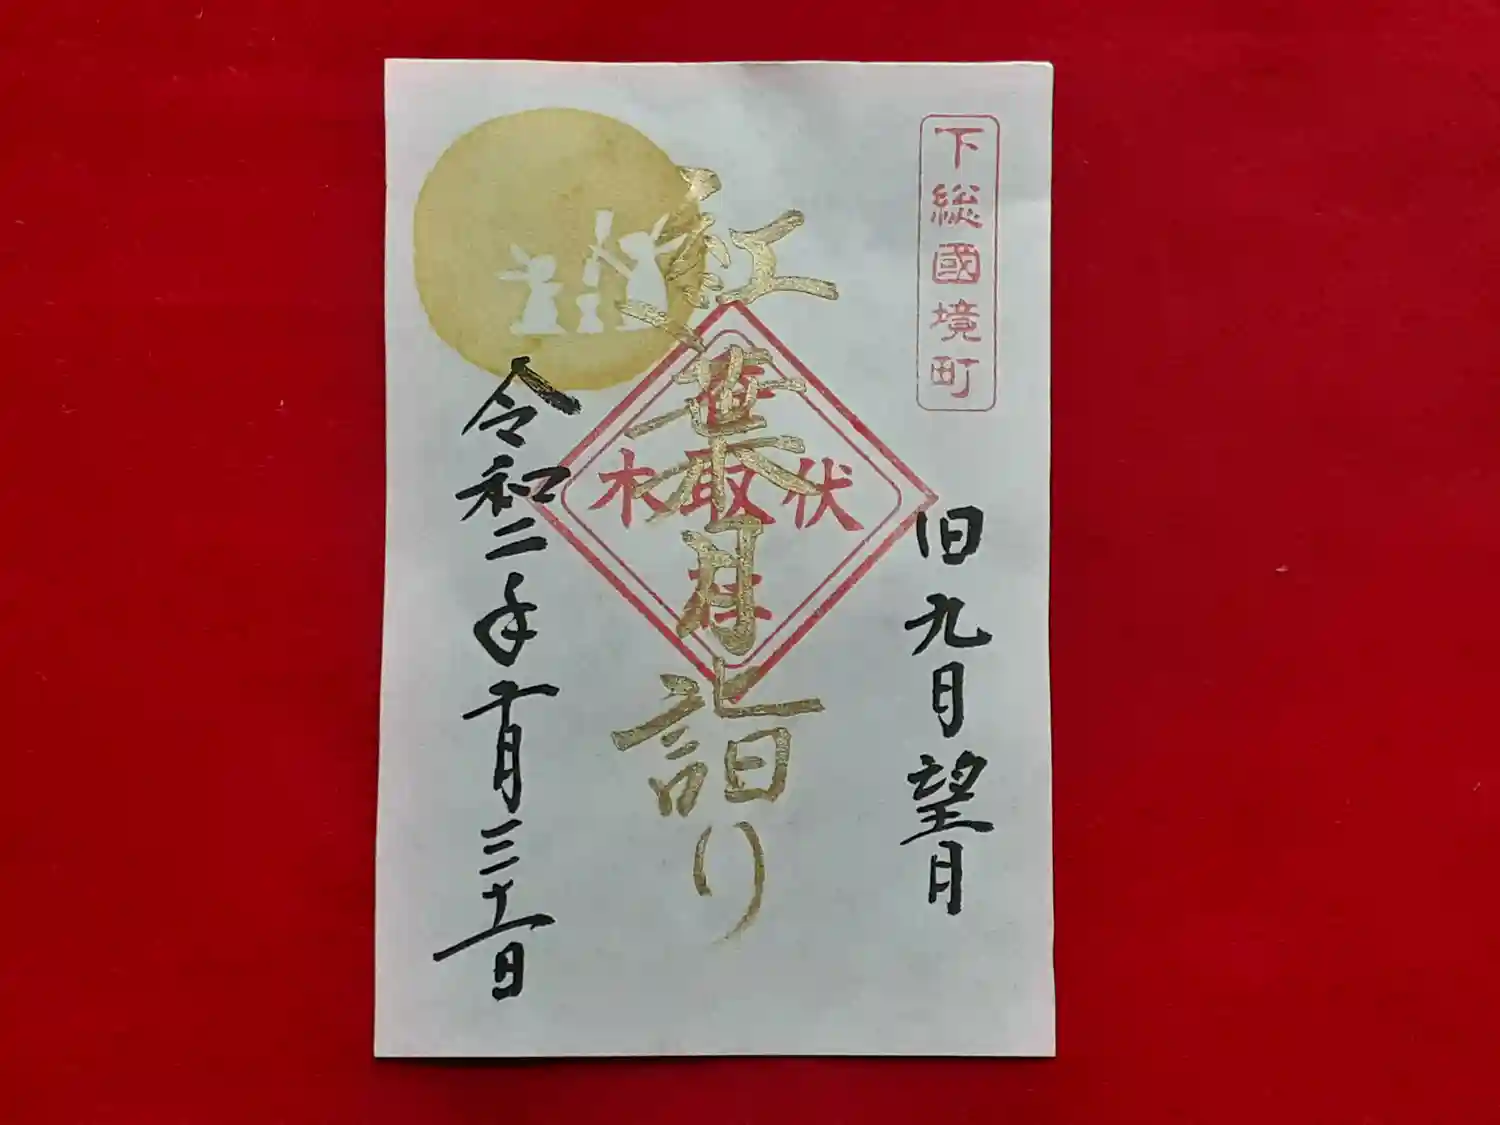 下総國境町
旧九月望月
紅葉月詣り
伏取木
令和二年十月三十一日